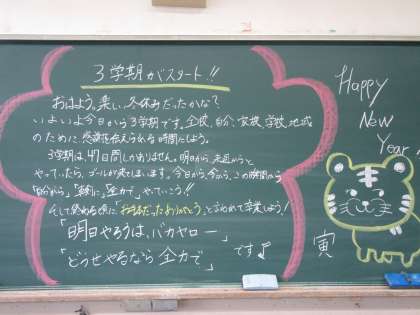 3学期がスタート!!
おはよう。楽しい冬休みだったかな?
いよいよ今日から3学期です。全校、自分、家族、学校、地域
のために 感謝を伝えられる時間にしよう。
3学期は、47日間しかありません。明日から、来週からと
やっていたら、ゴールが来てしまいます。今日から、今から、この時間から
「自分から」「真剣に」「全力で」やっていこう!!
そして終わる頃に「お手本だった ありがとう」と言われて卒業しよう!
「明日やろうは、バカヤロー」
「どうせやるなら 全力で」です♪
Happy
New
Year!
寅